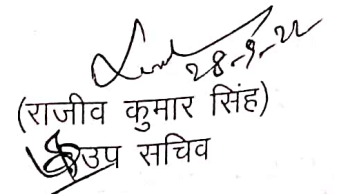 28-9-22
(राजीव कुमार सिंह)
उप सचिव